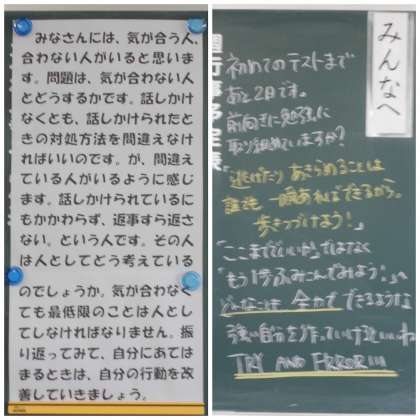 みなさんには、気が合う人、
合わない人がいると思いま
す。問題は、気が合わない人
とどうするかです。話しかけ
なくとも、話しかけられたと
きの対処方法を間違えなけ
ればいいのです。が、間違え
ている人がいるように感じ
ます。話しかけられているに
もかかわらず、返事すら返さ
ない。という人です。その人
は人としてどう考えている
のでしょうか。気が合わなく
ても最低限のことは人とし
てしなければなりません。振
り返ってみて、自分にあては
まるときは、自分の行動を改
善していきましょう。
みんなへ
初めてのテストまで
あと2日です。
前向きに勉強に
取り組めていますか?
「逃げたりあきらめることは
誰も一瞬あればできるから。
歩きつづけよう!」
「ここまででいいか」ではなく
「もう1歩ふみこんでみよう!」へ
どんなことは全力でできるような
強い自分を作っていけるといいね
TRY AND ERROR!!!
行事予定表